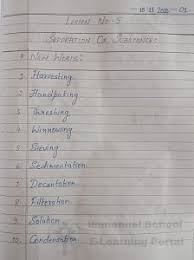 Lesson No-5
Separation Of Substances
* New Words:
1. Harvesting
2. Handpicking
3. Threshing
4. Winnowing
5. Sieving
6. Sedimentation
7. Decantation
8. Filteration
9. Solution
10. Condensation
Immanuel School
E-Learning Portal